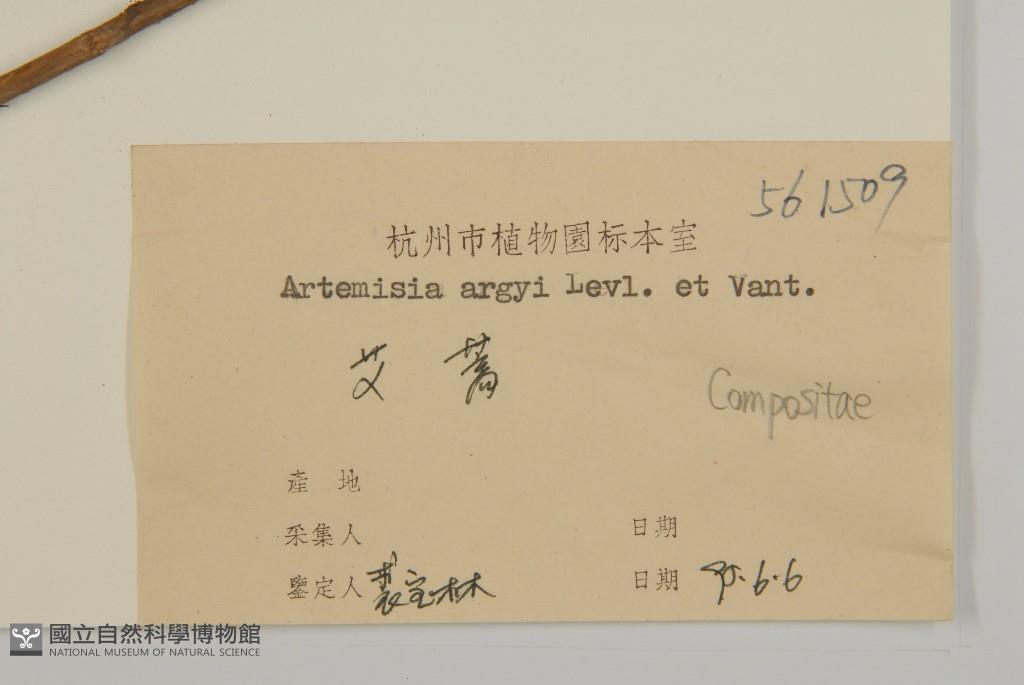 561509
杭州市植物園标本室
Artemisia argyi Levl. et Vant.
艾 蒿
Compositae
產 地
采集人 日期
鑒定人 裘宝林 日期 95.6.6
國立自然科學博物館
NATIONAL MUSEUM OF NATURAL SCIENCE